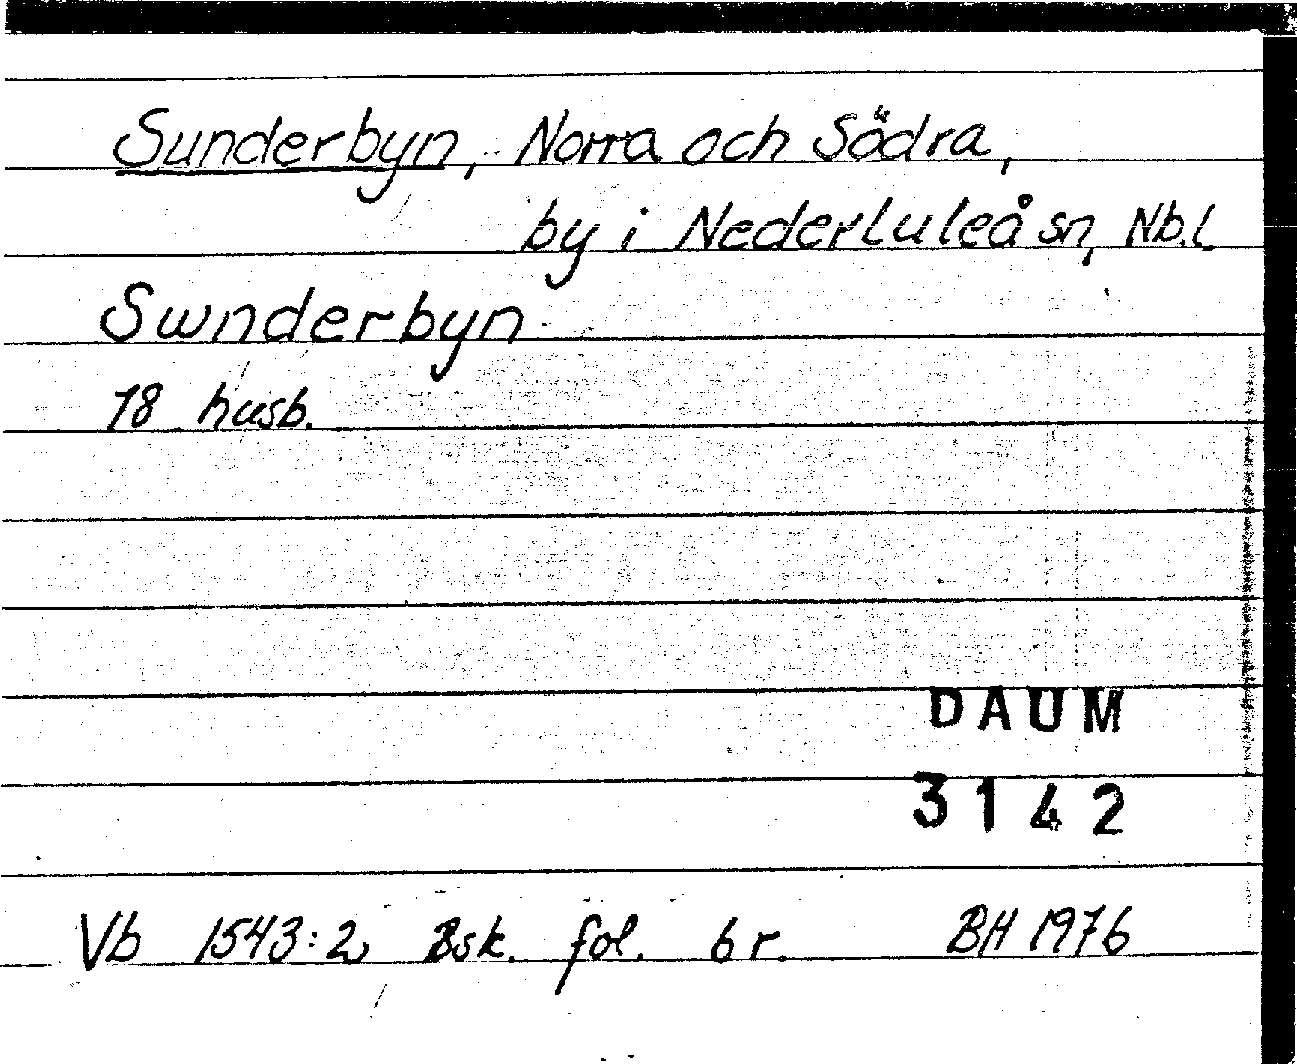 Sunderbyn, Norra och Södra,
by i Nederluleå sn, Nb.l
Swnderbyn
18 husb.
DAUM
3142
Vb 1543:2, Bsk. fol. 6 r. BH 1976